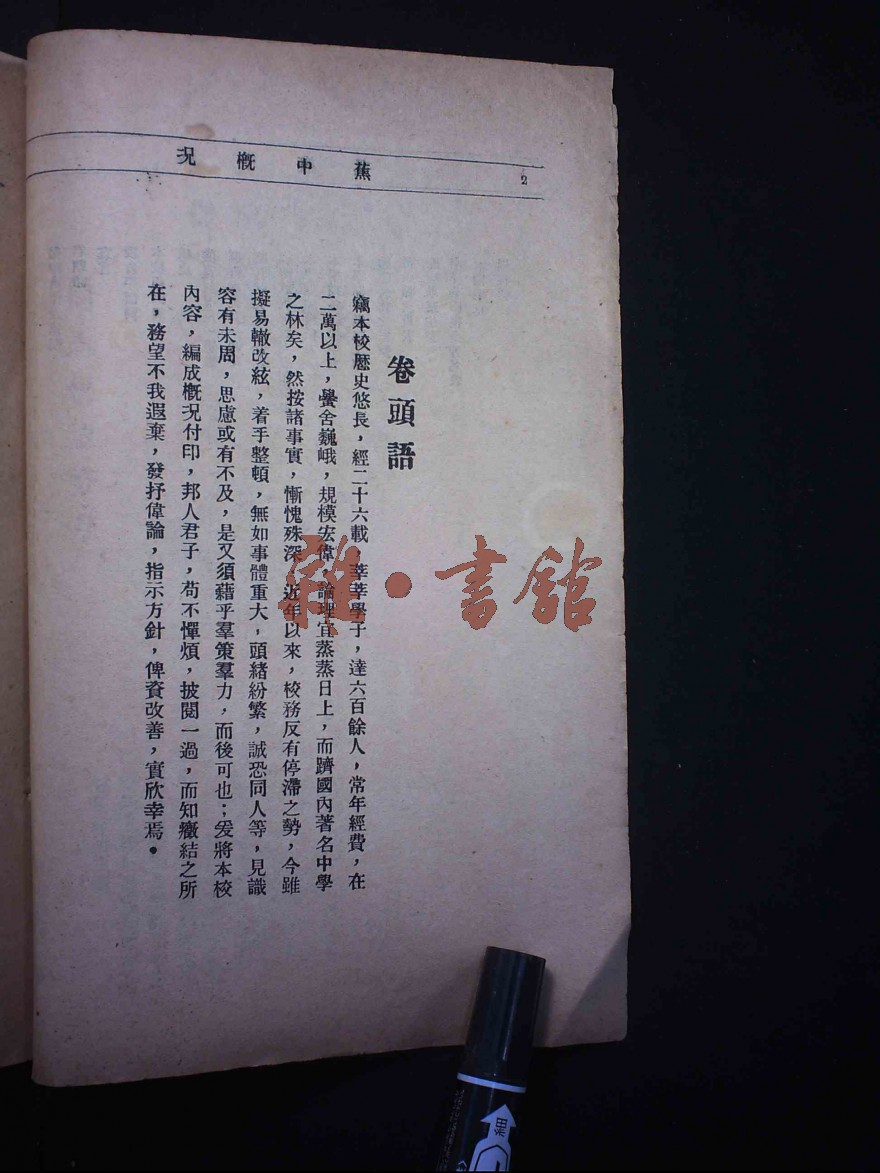 蕉中概況
2
卷頭語
竊本校歷史悠長，經二十六載，莘莘學子，達六百餘人，常年經費，在
二萬以上，黌舍巍峨，規模宏偉，論理宜蒸蒸日上，而躋國內著名中學
之林矣，然按諸事實，慚愧殊深，近年以來，校務反有停滯之勢，今雖
擬易轍改絃，着手整頓，無如事體重大，頭緒紛繁，誠恐同人等，見識
容有未周，思慮或有不及，是又須藉乎羣策羣力，而後可也；爰將本校
內容，編成概況付印，邦人君子，苟不憚煩，披閱一過，而知癥結之所
在，務望不我遐棄，發抒偉論，指示方針，俾資改善，實欣幸焉。
雜·書館
黑